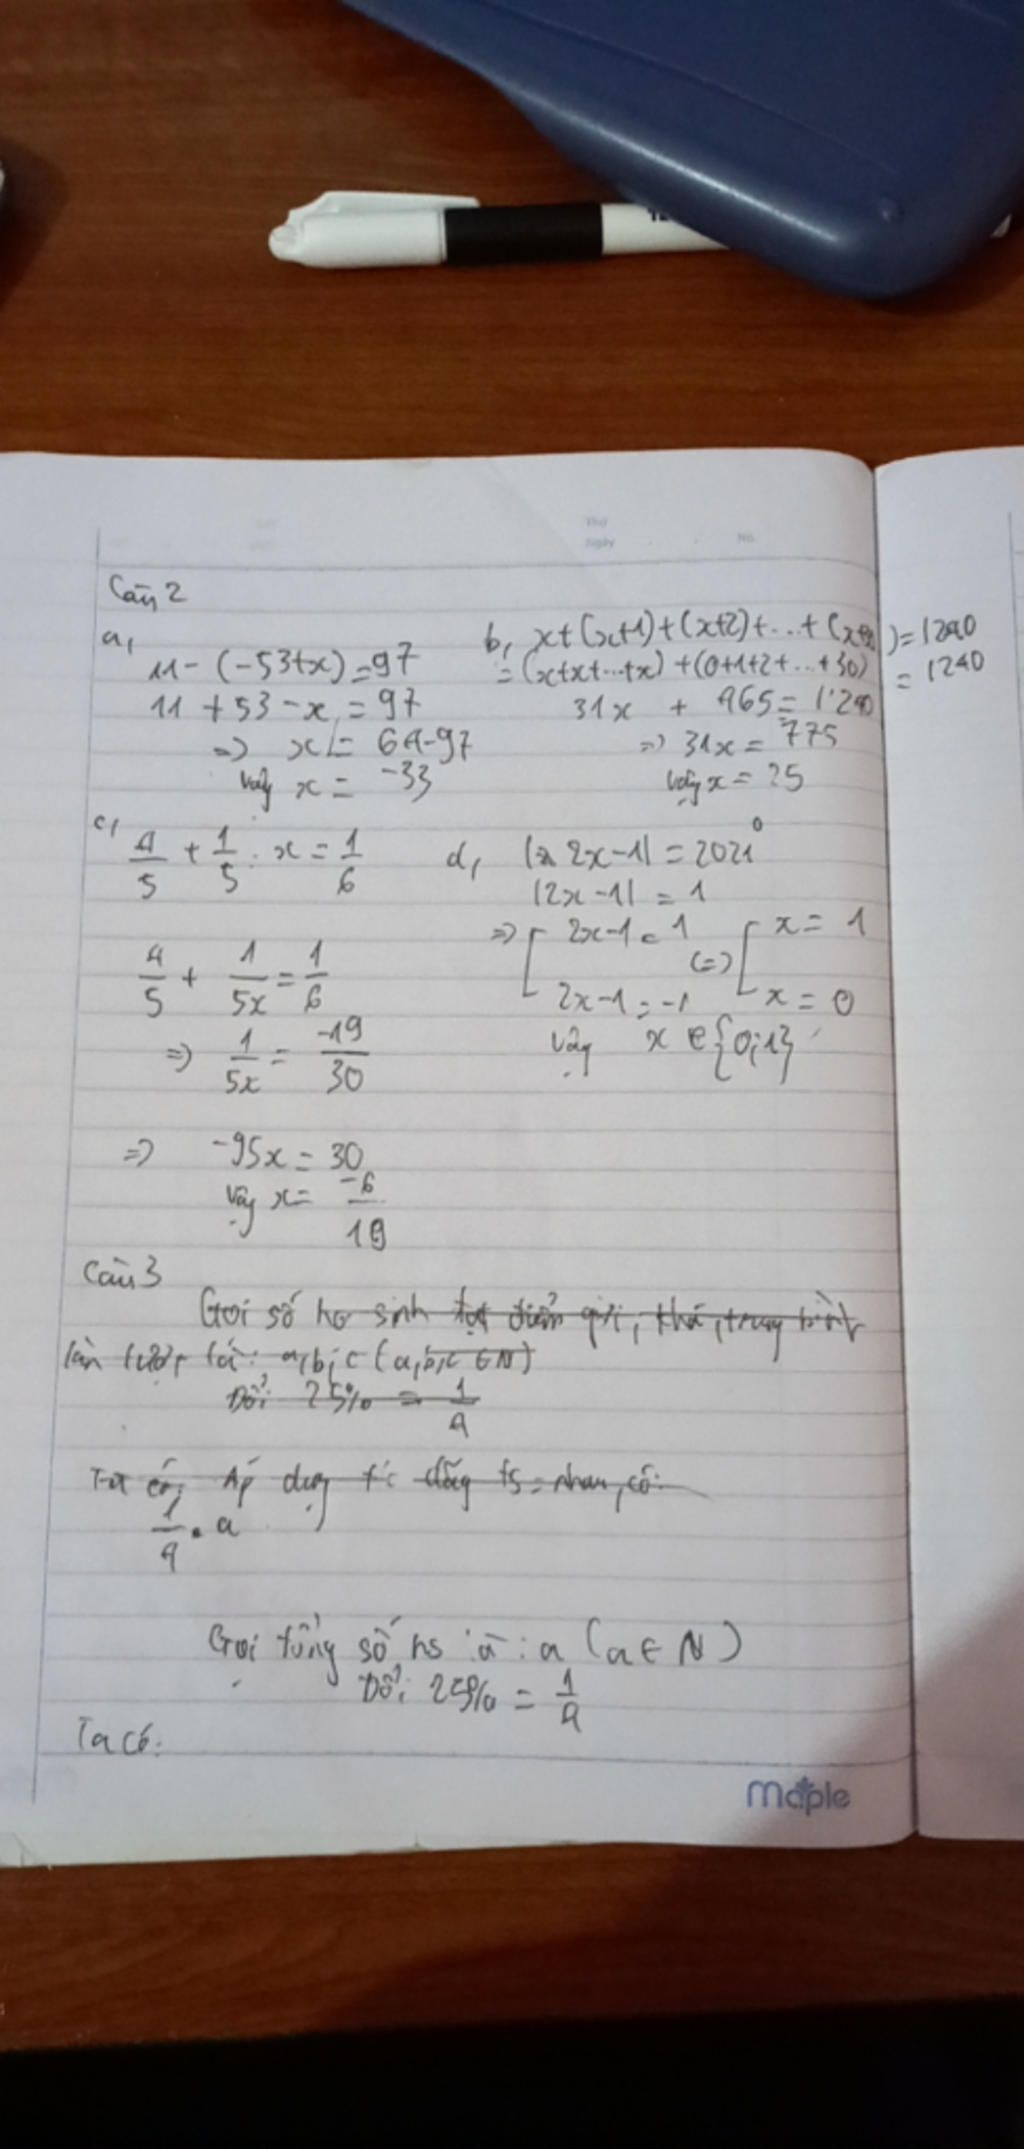 Thứ
Ngày No.
Câu 2
a,
11-(-53+x)=97
11+53-x=97
=> x = 64-97
Vậy x = -33
b, x+(x+1)+(x+2)+...+(x+30)=1240
=(x+x+...+x)+(0+1+2+...+30) = 1240
31x + 465 = 1240
=> 31x = 775
Vậy x = 25
c, 4/5 + 1/5 : x = 1/6
4/5 + 1/5x = 1/6
=> 1/5x = -19/30
=> -95x = 30
Vậy x = -6/19
d, |2x-1| = 2021⁰
|2x-1| = 1
=> [ 2x-1 = 1 (=) [ x = 1
2x-1 = -1 x = 0
Vậy x ∈ {0;1}
Câu 3
Gọi số học sinh đạt điểm giỏi, khá, trung bình
lần lượt là: a,b,c (a,b,c ∈ N)
Đổi: 25% = 1/4
Ta có, Áp dụng t/c dãy ts = nhau, có:
1/4 . a
Gọi tổng số hs là: a (a ∈ N)
Đổi: 25% = 1/4
Ta có:
Maple